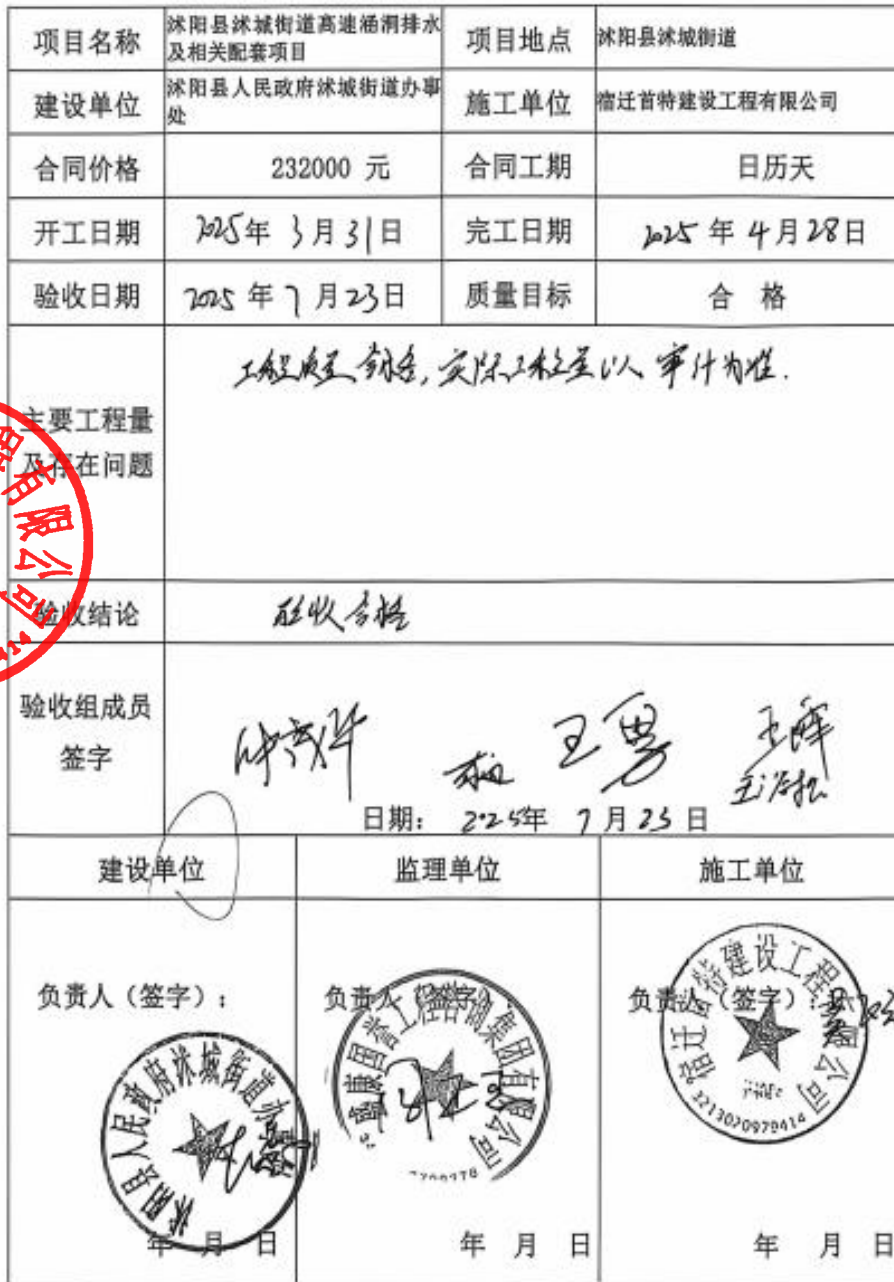 项目名称 沭阳县沭城街道高速涵洞排水及相关配套项目 项目地点 沭阳县沭城街道
建设单位 沭阳县人民政府沭城街道办事处 施工单位 宿迁首特建设工程有限公司
合同价格 232000 元 合同工期 日历天
开工日期 2025年 3月31日 完工日期 2025年4月28日
验收日期 2025年7月23日 质量目标 合 格
主要工程量及存在问题 工程质量合格,实际工程量以审计为准.
有限公司
验收结论 验收合格
验收组成员签字 王勇 王辉
日期: 2025年 7月23日
建设单位 监理单位 施工单位
负责人(签字): 负责人(签字) 负责人(签字):
沭阳县人民政府沭城街道办事处
国誉工程咨询集团有限公司
宿迁首特建设工程有限公司
3213020970414
年 月 日 年 月 日 年 月 日